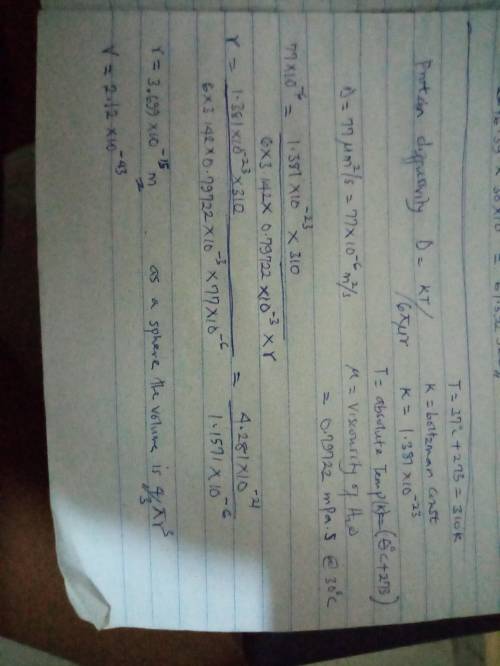 T = 37°C + 273 = 310K
Protein diffusivity D = KT/6πμr
K = boltzman const
K = 1.381 × 10⁻²³
T = absolute Temp(K) = (°C + 273)
D = 77 μm²/s = 77 × 10⁻⁶ m²/s
μ = viscosity of H₂O
= 0.79722 mPa.s @ 30°C
77 × 10⁻⁶ = 1.381 × 10⁻²³ × 310
6 × 3.142 × 0.79722 × 10⁻³ × r
r = 1.381 × 10⁻²³ × 310 = 4.281 × 10⁻²¹
6 × 3.142 × 0.79722 × 10⁻³ × 77 × 10⁻⁶ 1.1571 × 10⁻⁶
r = 3.699 × 10⁻¹⁵ m as a sphere the volume is 4/3 πr³
V = 2.12 × 10⁻⁴³